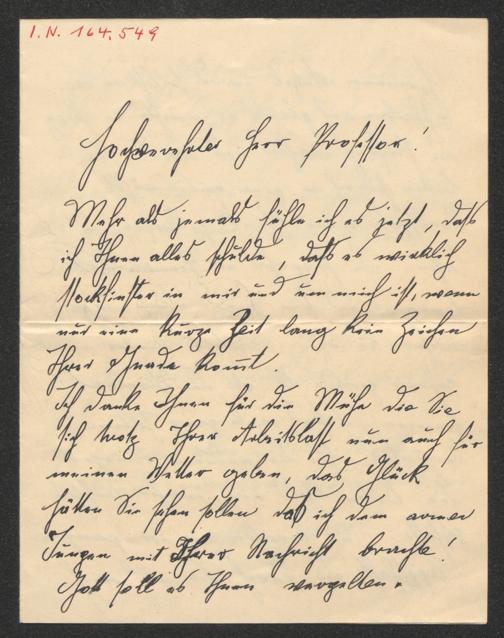 I.N. 164.549
Hochverehrter Herr Professor!
Mehr als jemals fühle ich es jetzt, daß
ich Ihnen alles schulde, daß es wirklich
stockfinster in mir und um mich ist, wenn
nur eine kurze Zeit lang kein Zeichen
Ihrer Gnade kom̅t.
Ich danke Ihnen für die Mühe die Sie
sich trotz Ihrer Arbeitslast nun auch für
meinen Vetter geben, das Glück
hätten Sie sehen sollen das ich dem armen
Jungen mit Ihrer Nachricht brachte!
Gott soll es Ihnen vergelten.